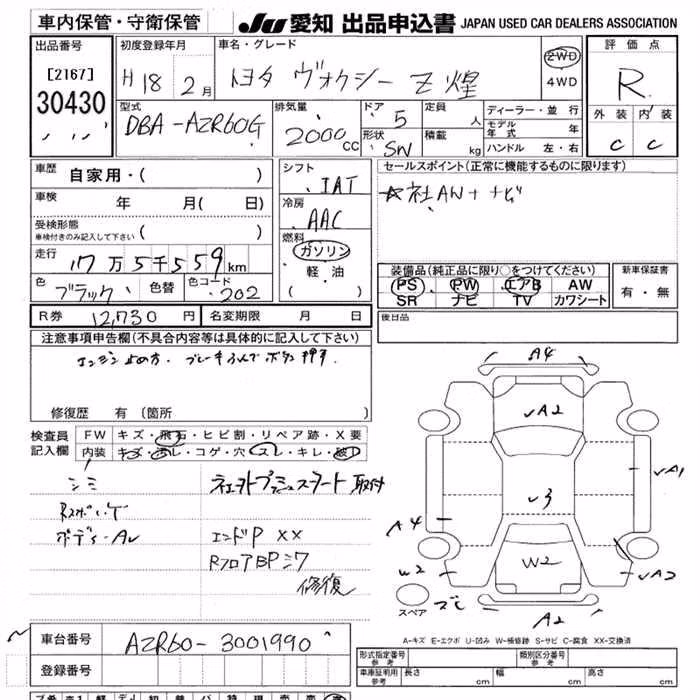 車内保管・守衛保管
JU 愛知 出品申込書 JAPAN USED CAR DEALERS ASSOCIATION
出品番号
[2167]
30430
初度登録年月
H 18 2月
車名・グレード
トヨタ ヴォクシー Z 煌
2WD
4WD
評価点
R
外装 内装
C C
型式
DBA-AZR60G
排気量
2000 CC
ドア
5
形状
SW
定員
人
積載
kg
ディーラー・並行
モデル年式 年
ハンドル 左・右
車歴 自家用・( )
車検 年 月( 日)
受検形態
車検付きのみ記入して下さい ( )
走行 17万5千559km
色 ブラック 色替 色コード 202
シフト
IAT
冷房
AAC
燃料
ガソリン
軽・油
( )
セールスポイント(正常に機能するものに限ります)
☆社AW+ナビ
装備品(純正品に限り○をつけてください)
PS PW エアB AW
SR ナビ TV カワシート
新車保証書
有・無
R券 12,730 円 名変期限 月 日
後日品
注意事項申告欄(不具合内容等は具体的に記入して下さい)
エンジン止め方. ブレーキふんでボタン押す.
修復歴 有 (箇所 )
検査員
記入欄
FW キズ・飛石・ヒビ割・リペア跡・X要
内装 キズ・汚レ・コゲ・穴・スレ・キレ・破レ
シミ
取付
エンドP XX
RフロアBP
修復
A4
A2
A1
3
A4
W2
W2
A2
スペア
A2
A-キズ E-エクボ U-凹み W-補修跡 S-サビ C-腐食 XX-交換済
車台番号 AZR60-3001990
登録番号
形式指定番号
参考
類別区分番号
参考
車庫証明用
参考
長さ cm 幅 cm 高さ cm